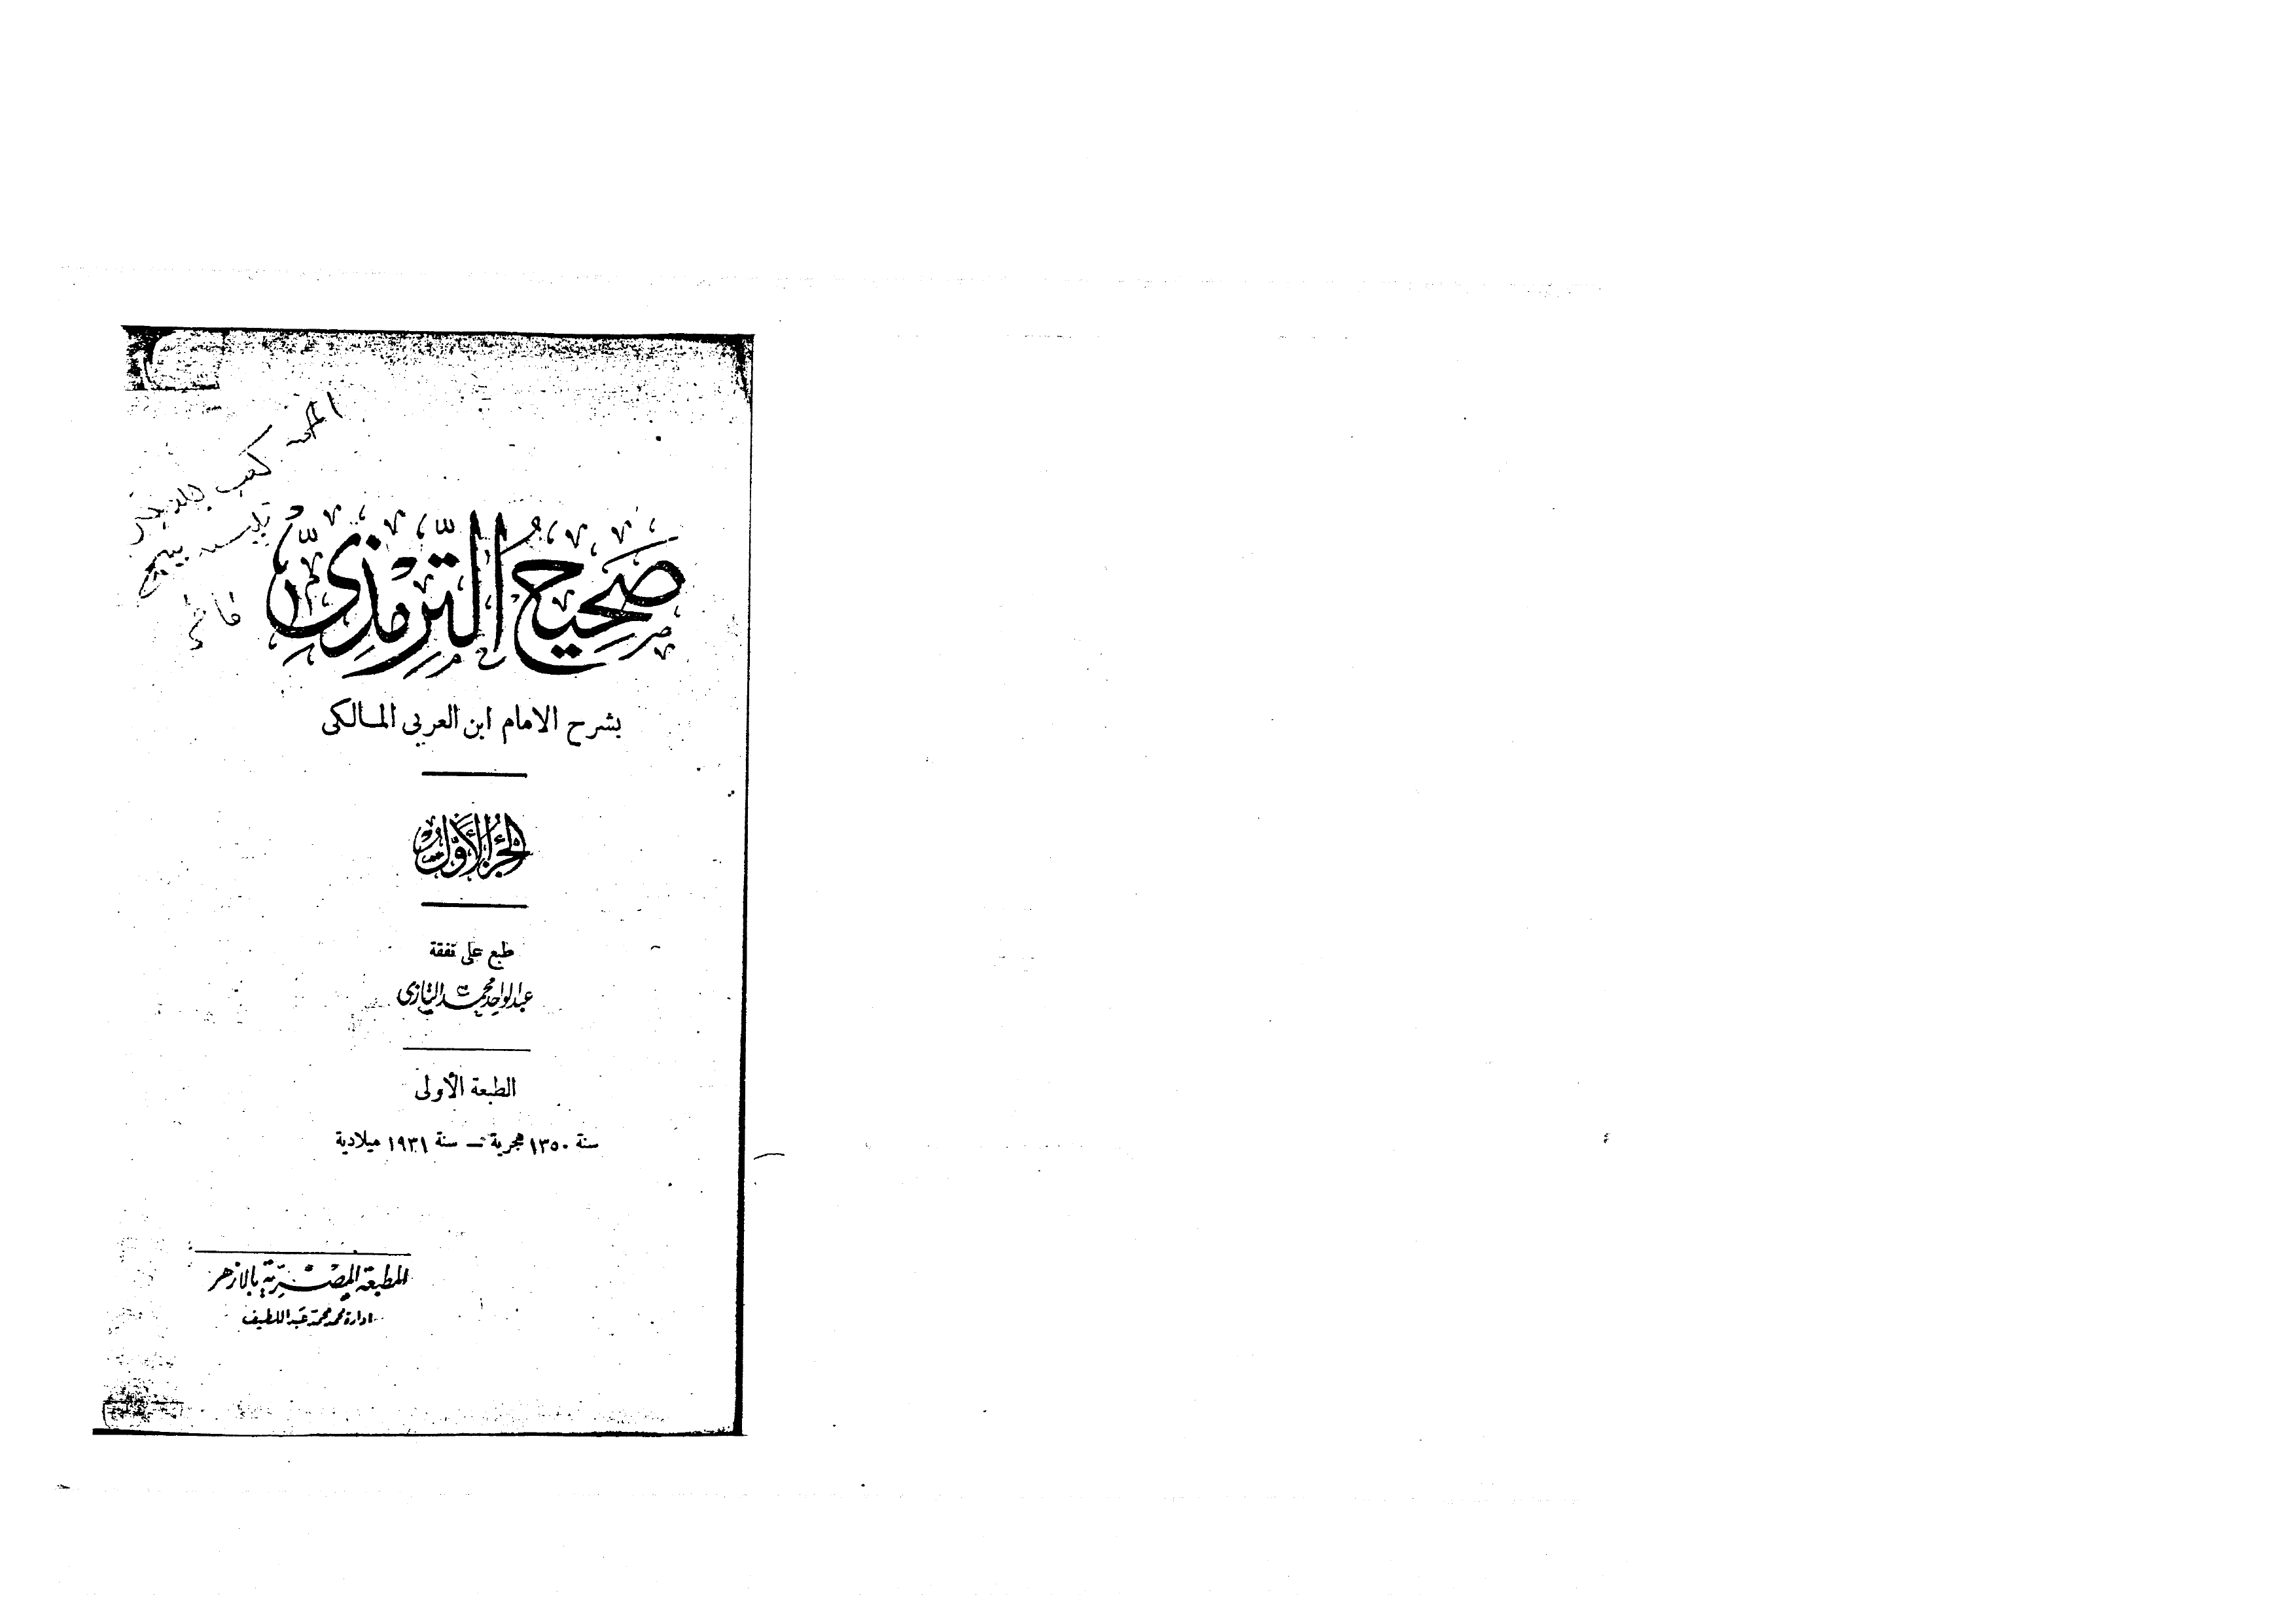 صَحِيحُ التِّرْمِذِيِّ
بشرح الامام ابن العربى المالكى
الجُزءُ الأَوَّلُ
طبع على نفقة
عبدالواحد محمد التازى
الطبعة الأولى
سنة ١٣٥٠ هجرية — سنة ١٩٣١ ميلادية
المطبعة المصرية بالأزهر
ادارة محمد محمد عبد اللطيف